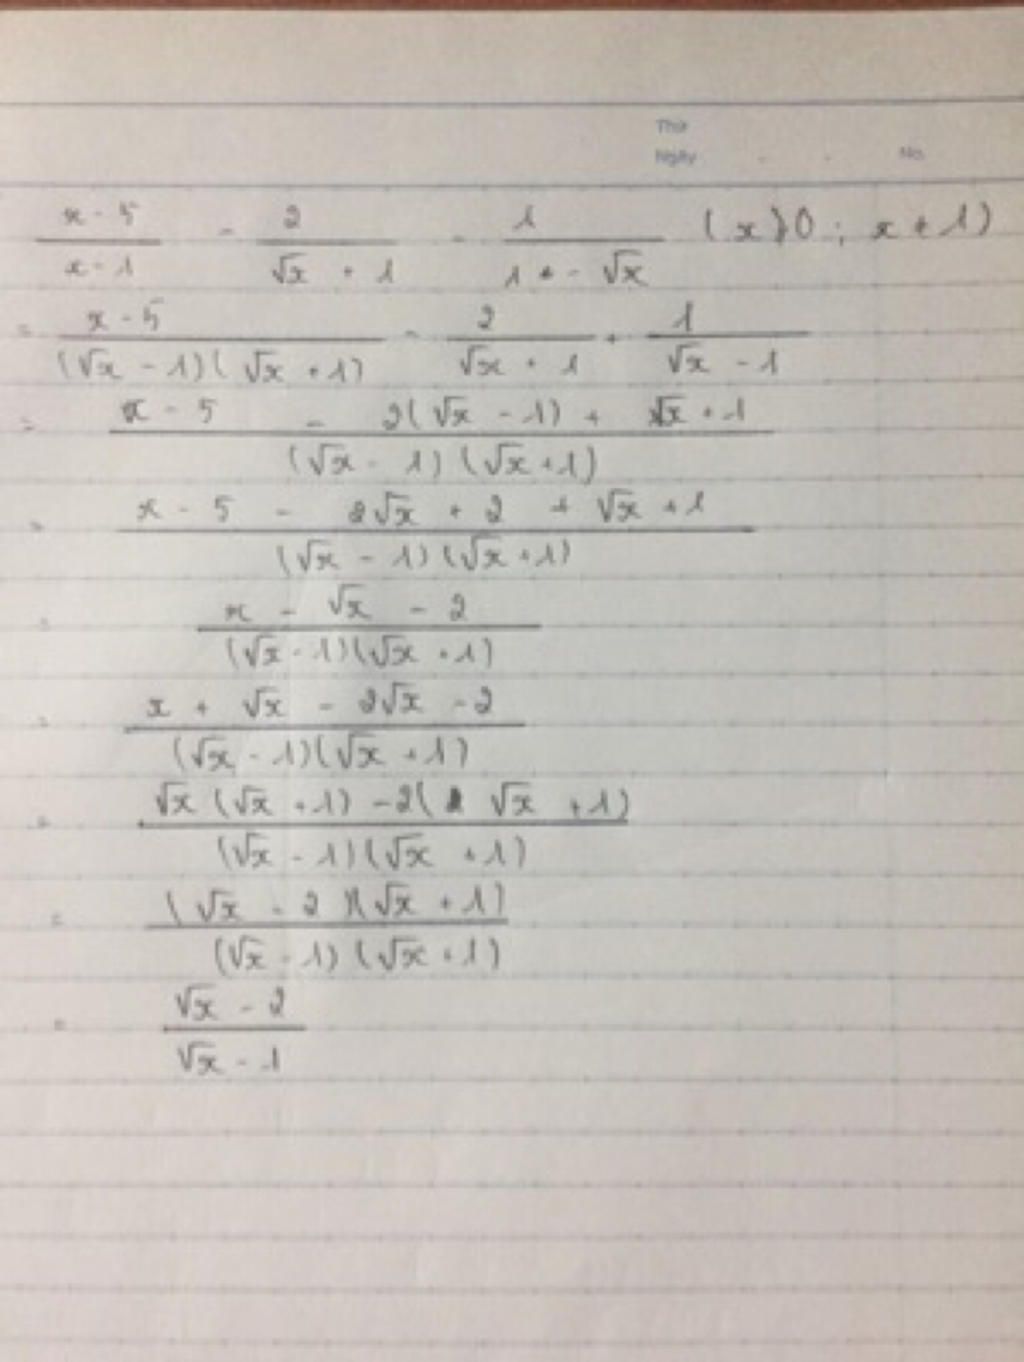 Thứ
Ngày . . No.
\frac{x - 5}{x - 1} - \frac{2}{\sqrt{x} + 1} - \frac{1}{1 - \sqrt{x}} (x ≥ 0 ; x ≠ 1)
= \frac{x - 5}{(\sqrt{x} - 1)(\sqrt{x} + 1)} - \frac{2}{\sqrt{x} + 1} + \frac{1}{\sqrt{x} - 1}
= \frac{x - 5 - 2(\sqrt{x} - 1) + \sqrt{x} + 1}{(\sqrt{x} - 1)(\sqrt{x} + 1)}
= \frac{x - 5 - 2\sqrt{x} + 2 + \sqrt{x} + 1}{(\sqrt{x} - 1)(\sqrt{x} + 1)}
= \frac{x - \sqrt{x} - 2}{(\sqrt{x} - 1)(\sqrt{x} + 1)}
= \frac{x + \sqrt{x} - 2\sqrt{x} - 2}{(\sqrt{x} - 1)(\sqrt{x} + 1)}
= \frac{\sqrt{x}(\sqrt{x} + 1) - 2(\sqrt{x} + 1)}{(\sqrt{x} - 1)(\sqrt{x} + 1)}
= \frac{(\sqrt{x} - 2)(\sqrt{x} + 1)}{(\sqrt{x} - 1)(\sqrt{x} + 1)}
= \frac{\sqrt{x} - 2}{\sqrt{x} - 1}